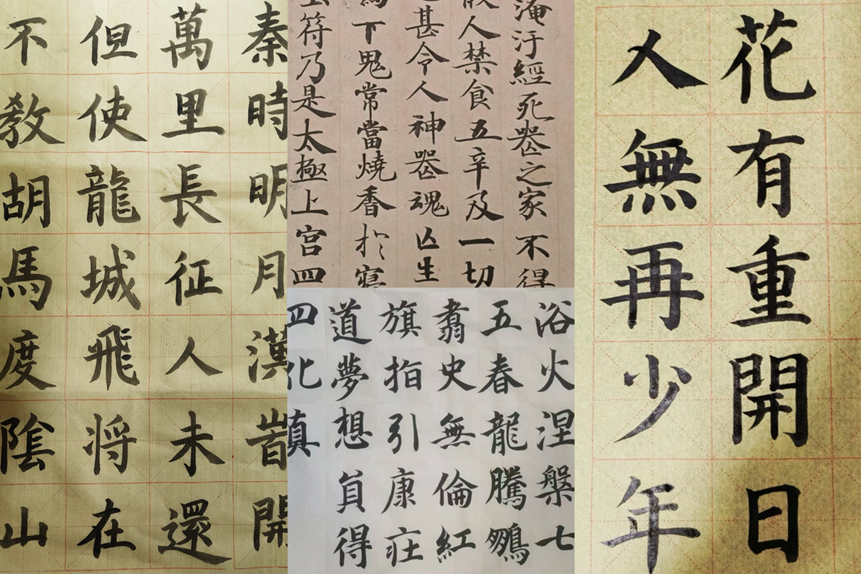 秦時明月漢旹開
萬里長征人未還
但使龍城飛将在
不教胡馬度陰山
淹汙經死喪之家不得
人禁食五辛及一切
甚令人神喪魂亡生
下鬼常當燒香於寢
符乃是太極上宮四
浴火涅槃七
五春龍騰
翥史無倫紅
旗指引康庄
道夢想員得
四化
花有重開日
人無再少年